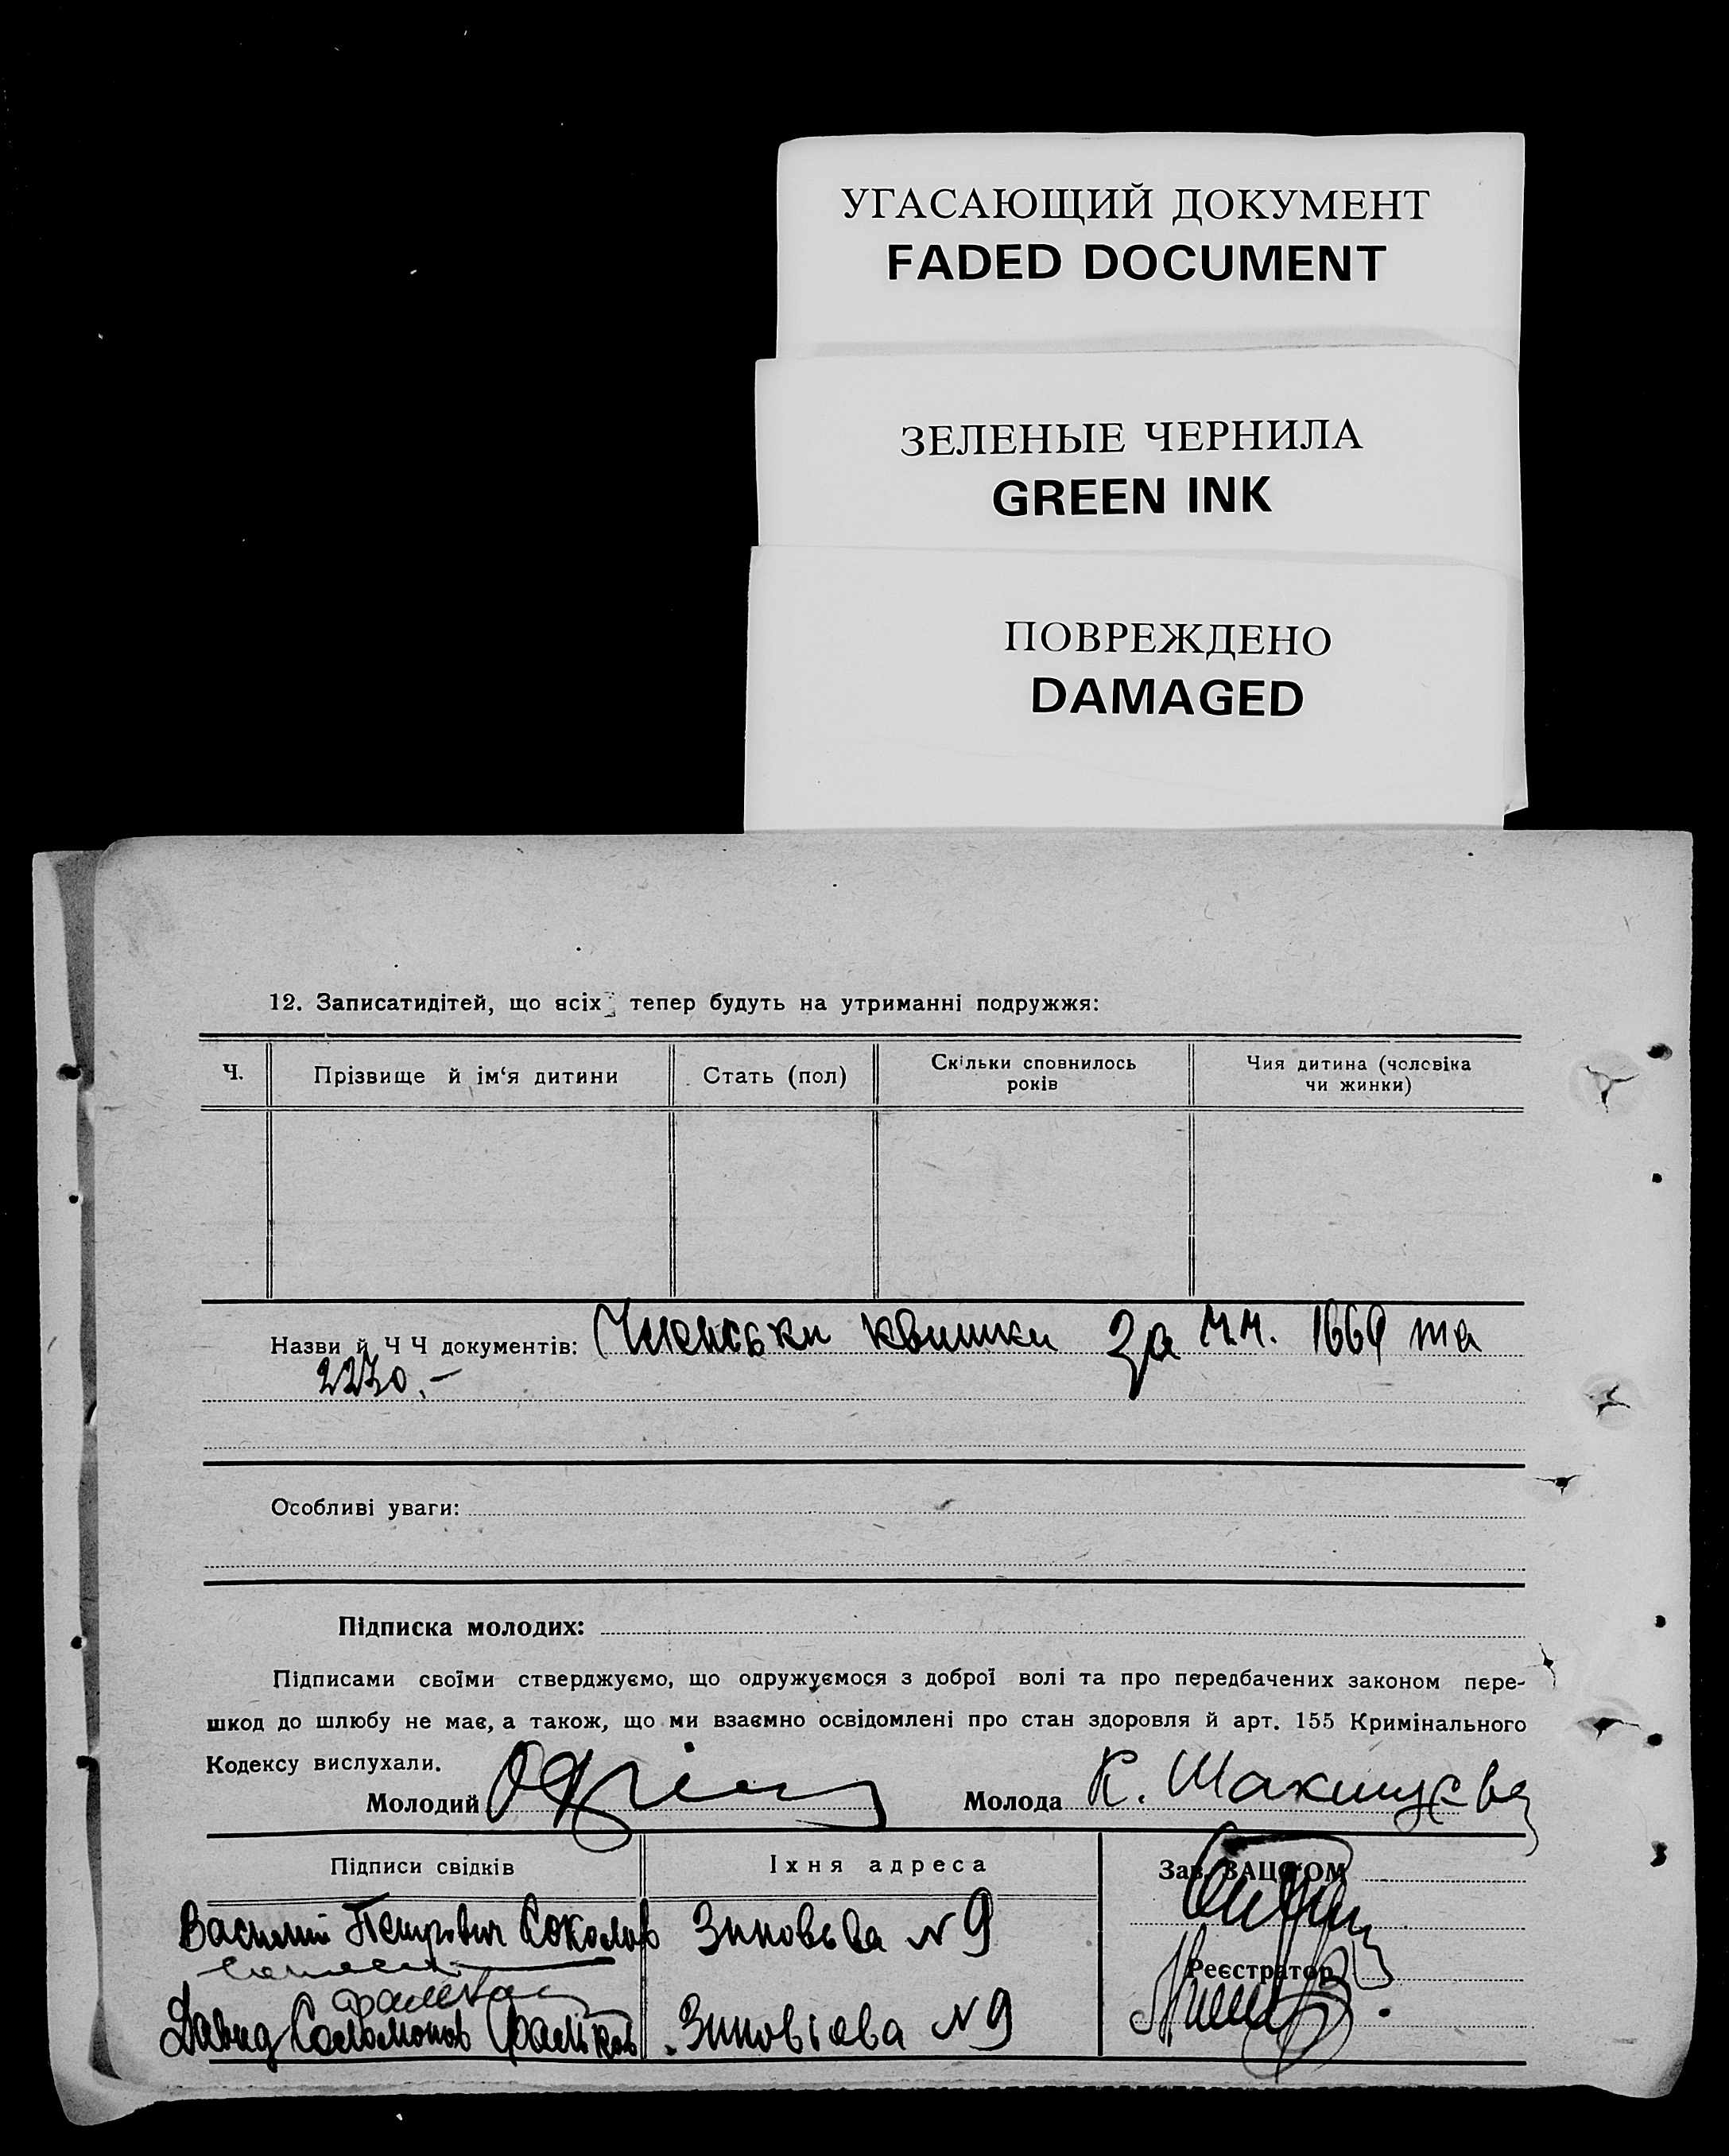 УГАСАЮЩИЙ ДОКУМЕНТ
FADED DOCUMENT
ЗЕЛЕНЫЕ ЧЕРНИЛА
GREEN INK
ПОВРЕЖДЕНО
DAMAGED
12. Записатидітей, що всіх тепер будуть на утриманні подружжя:
Ч.
Прізвище й ім‘я дитини
Стать (пол)
Скільки сповнилось
років
Чия дитина (чоловіка
чи жинки)
Назви й Ч Ч документів: Членськи квитки за Ч.Ч. 1669 та
2270.–
Особливі уваги:
Підписка молодих:
Підписами своїми стверджуємо, що одружуємося з доброї волі та про передбачених законом пере-
шкод до шлюбу не має, а також, що ми взаємно освідомлені про стан здоровля й арт. 155 Кримінального
Кодексу вислухали.
Молодий
Молода К.
Підписи свідків
Їхня адреса
Зав. ЗАЦС‘ОМ
Василий Петрович Соколов Зиновьва № 9
Реєстратор
Давид Соломонов Фальков Зиновієва № 9